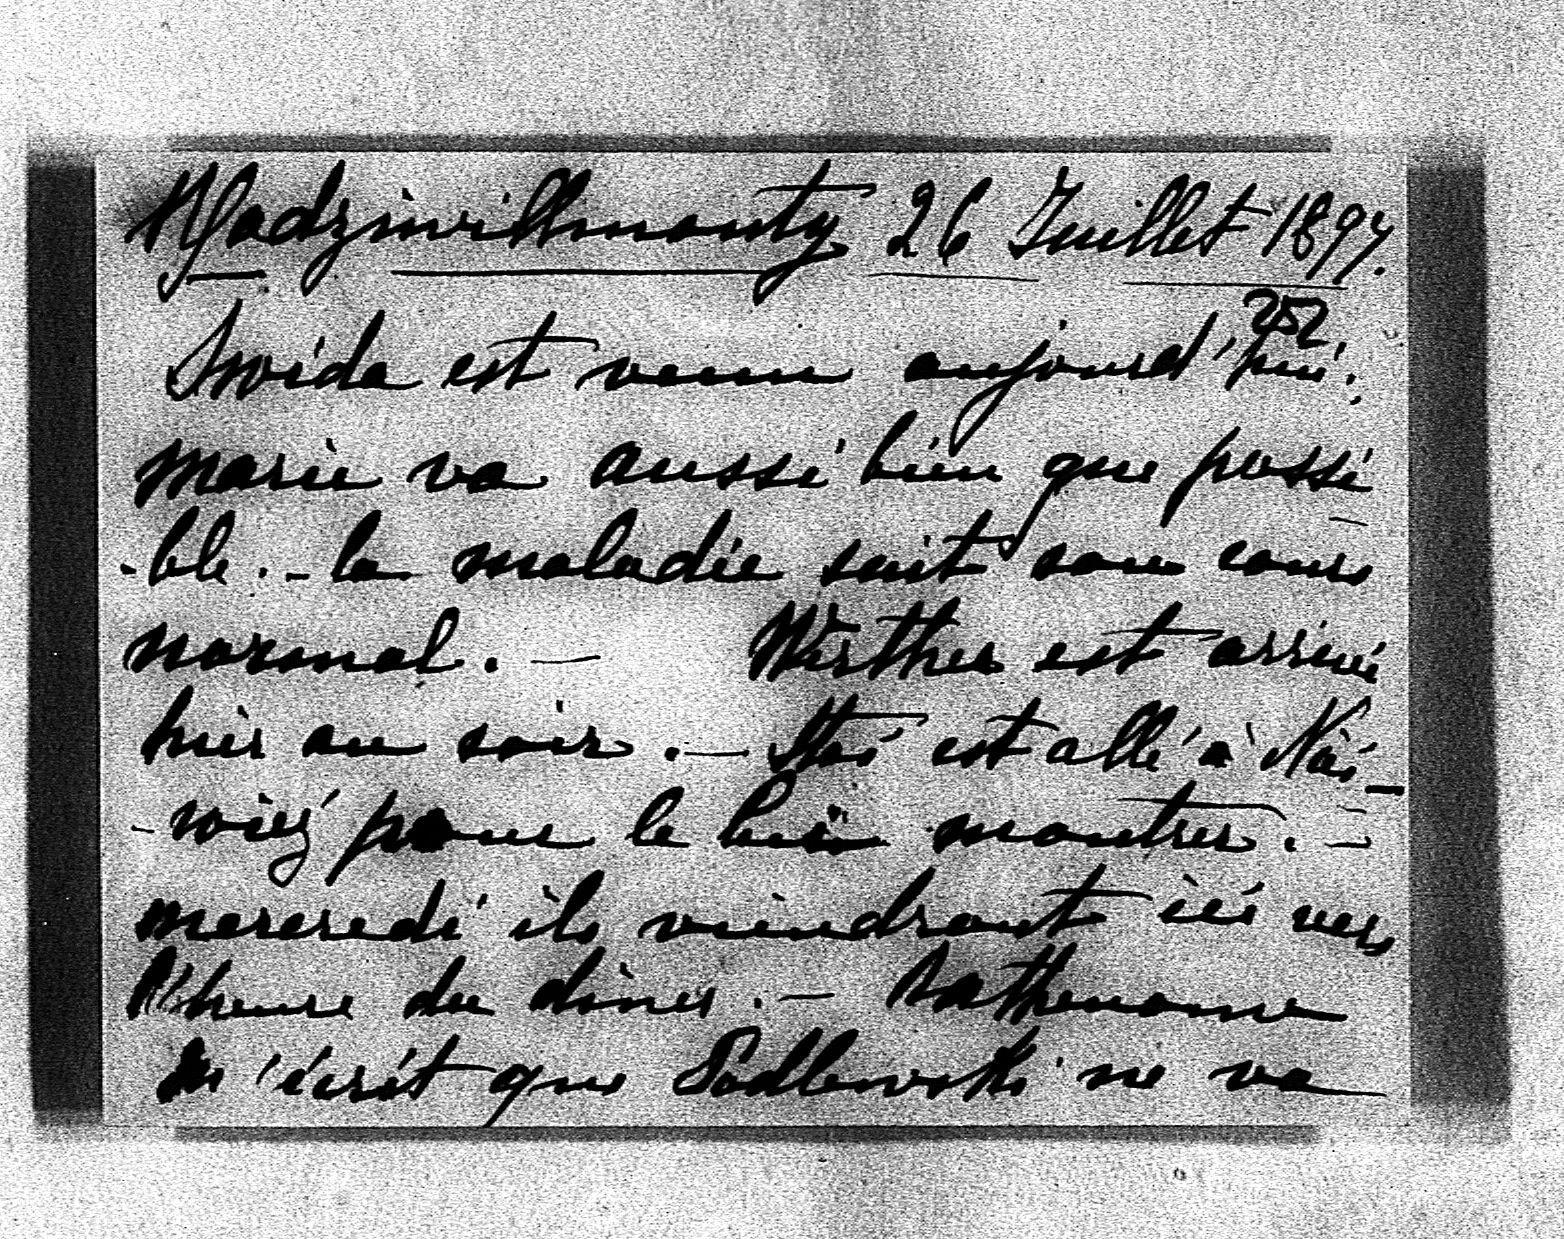 Radziwillmonty 26 Juillet 1897.
252
Swida est venu aujourd'hui.
Marie va aussi bien que possi
-ble. - la maladie suit son cours
normal. — Werther est arrivé
hier au soir. — Stas est allé à Nies-
-wiez pour le lui montrer. —
Mercredi ils viendront ici vers
l'heure du diner. —
m'écrit que Podlewski ne va